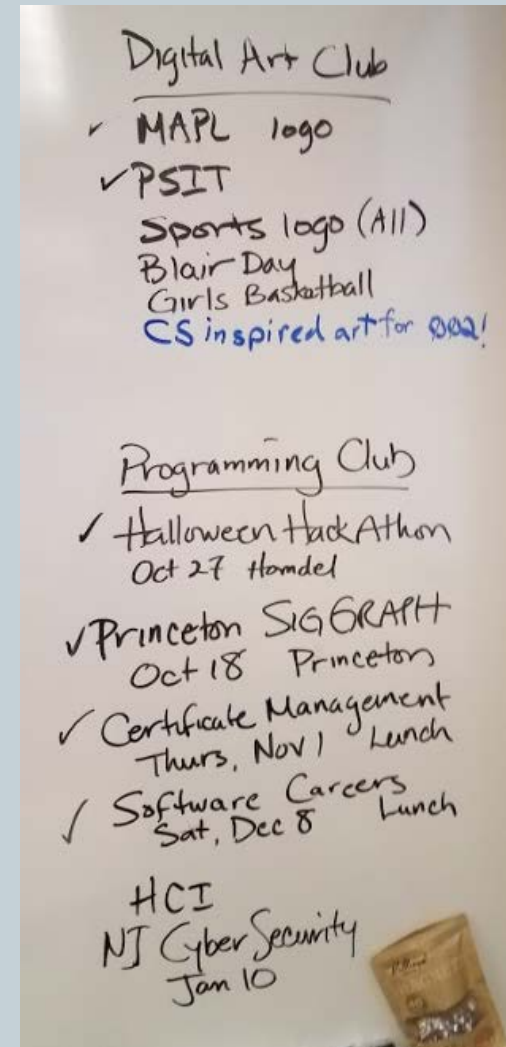 Digital Art Club
✓ MAPL logo
✓ PSIT
Sports logo (All)
Blair Day
Girls Basketball
CS inspired art for 002!
Programming Club
✓ Halloween HackAthon
Oct 27 Homdel
✓ Princeton SIGGRAPH
Oct 18 Princeton
✓ Certificate Management
Thurs, Nov 1 Lunch
✓ Software Careers
Sat, Dec 8 Lunch
HCI
NJ Cyber Security
Jan 10